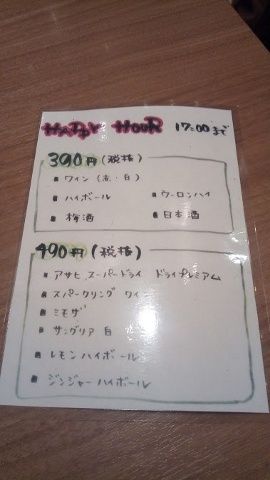 HAPPY HOUR 17:00まで
390円(税抜)
ワイン(赤・白)
ハイボール ウーロンハイ
梅酒 日本酒
490円(税抜)
アサヒ スーパードライ ドライプレミアム
スパークリング ワイ
ミモザ
サングリア 白
レモンハイボール
ジンジャーハイボール